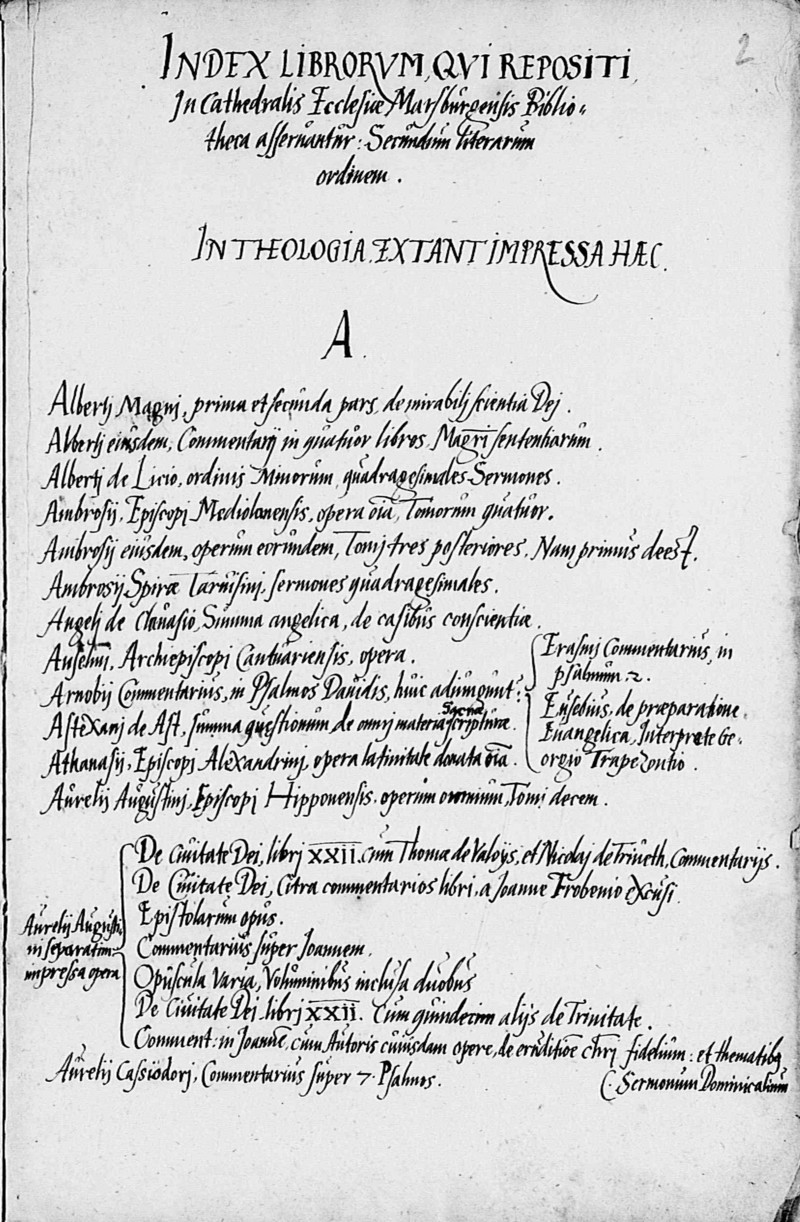 2
INDEX LIBRORVM, QVI REPOSITI
In Cathedralis Ecclesiæ Marsburgensis Biblio=
theca asseruantur: Secundum literarum
ordinem.
IN THEOLOGIA EXTANT IMPRESSA HÆC.
A.
Albertj Magnj, prima et secunda pars, de mirabilj scientia Dej.
Albertj eiusdem, Commentarij in quatuor libros Magrī sententiarum.
Albertj de Licio, ordinis Minorum, quadragesimales Sermones.
Ambrosij, Episcopj Mediolanensis, opera oīa, Tomorum quatuor.
Ambrosij eiusdem, operum eorundem, Tomj tres posteriores. Nam primus deest.
Ambrosij Spiræ Taruisinj, sermones quadragesimales.
Angelj de Clauasio, Summa angelica, de casibus conscientiæ.
Anselmj, Archiepiscopi Cantuariensis, opera.
Arnobij Commentarius, in Psalmos Dauidis, huic adiungunt̄:
Erasmj Commentarius, in
psalmum 2.
Eusebius, de præparatione
Euangelica, Interprete Ge=
orgio Trapezontio.
Astexanj de Ast, summa quęstionum de omnj materia sacræ scripturæ.
Athanasij, Episcopj Alexandrinj, opera latinitate donata oīa.
Aurelij Augustinj, Episcopj Hipponensis, operum omnium, Tomj decem.
Aurelij Augusti=
ni separatim
impressa opera
De Ciuitate Dei, librj XXII. cum Thomæ de Valoijs, et Nicolaj de Triueth, Commentarijs.
De Ciuitate Dei, Citra commentarios libri, a Joanne Frobenio excusi
Epistolarum opus.
Commentarius super Joannem.
Opuscula Varia, Voluminibus inclusa duobus
De Ciuitate Dej librj XXII. Cum quindecim alijs de Trinitate.
Comment: in Joannē, cum Autoris cuiusdam opere, de eruditiōe chrī fidelium: et thematibꝫ
Sermonum Dominicalium
Aurelij Cassiodorj, Commentarius super 7. Psalmos.